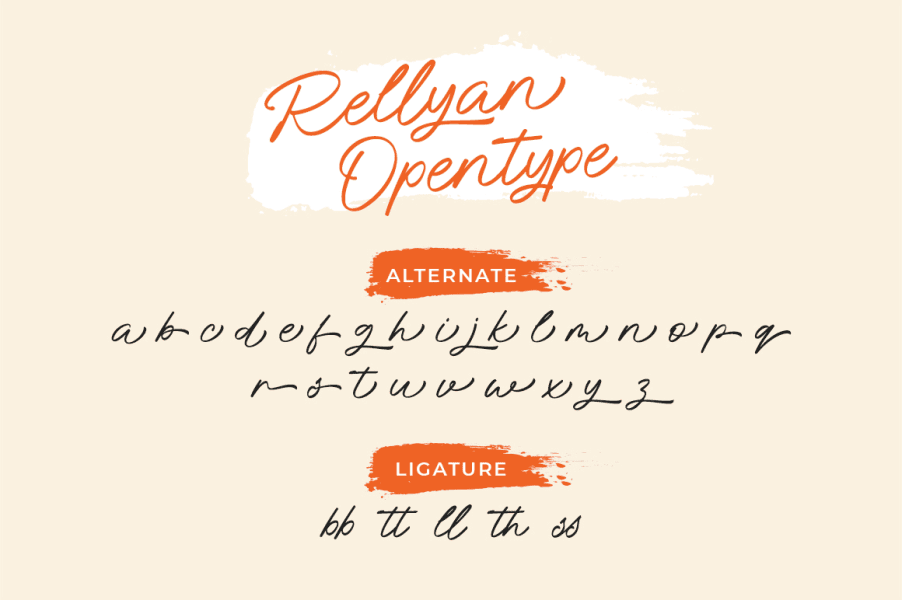 Rellyan
Opentype
ALTERNATE
a b c d e f g h i j k l m n o p q
r s t u v w x y z
LIGATURE
bb tt ll th ss